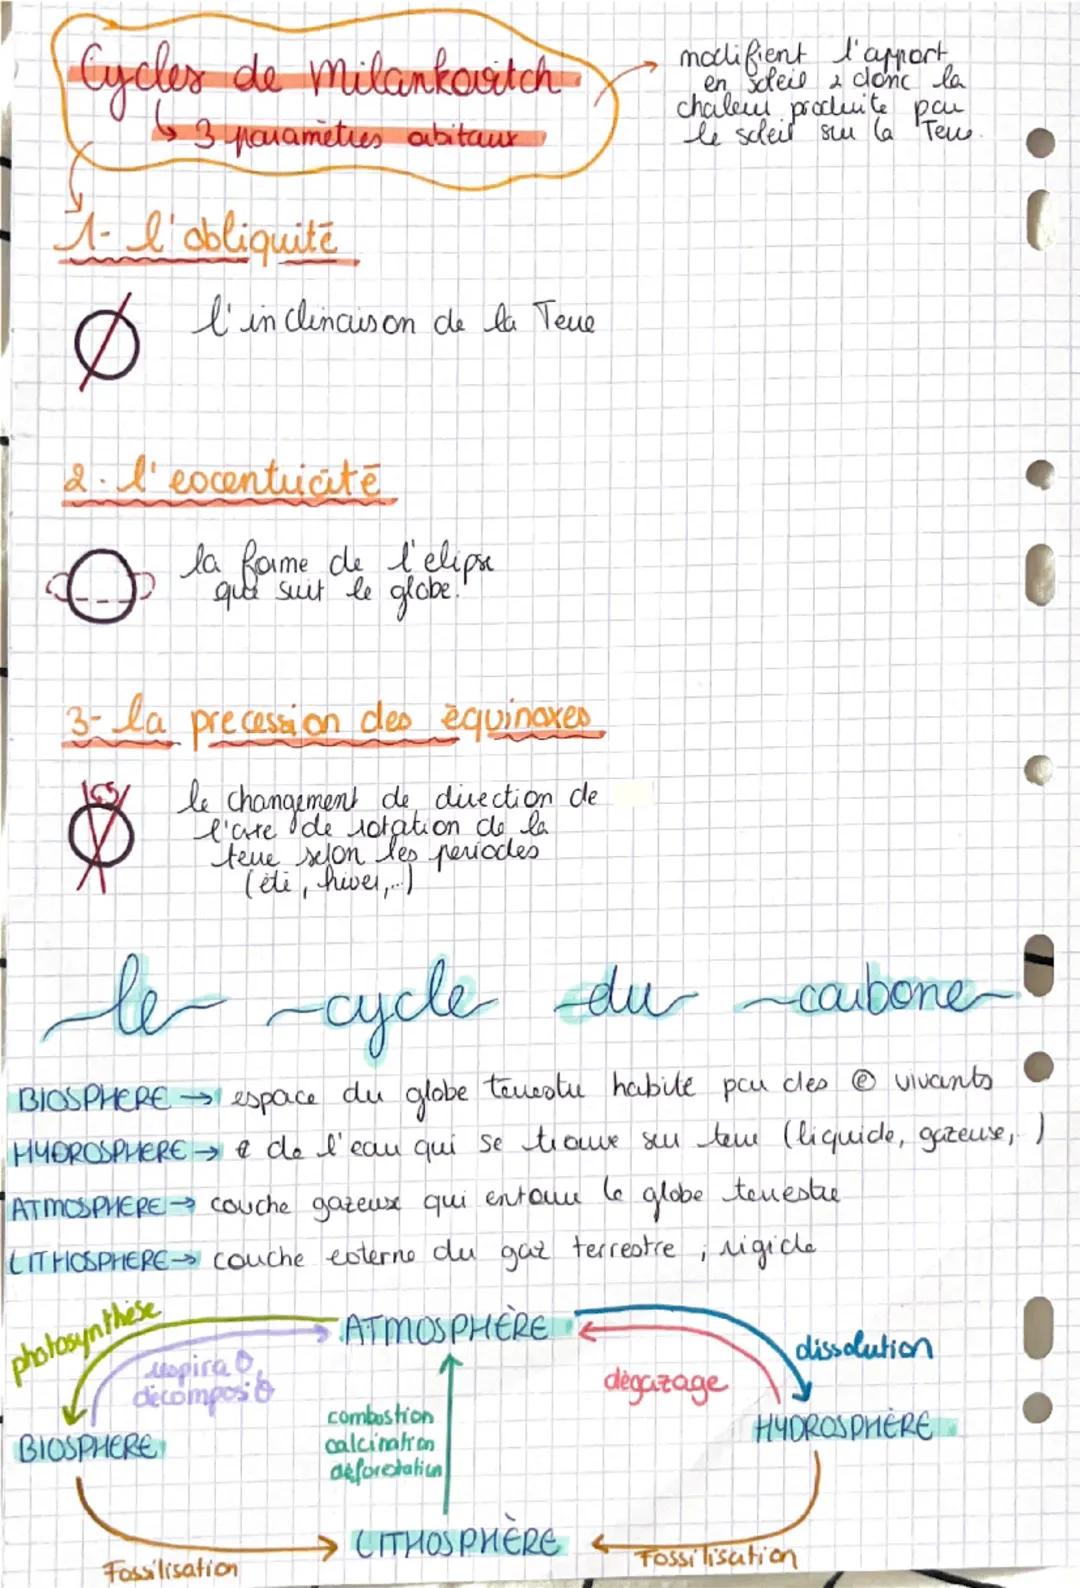 Cycles de Milankovitch
↳ 3 paramètres orbitaux
modifient l'apport
en soleil & donc la
chaleur produite par
le soleil sur la Terre.
1- l'obliquité
l'inclinaison de la Terre
2. l'excentricité
la forme de l'elipse
que suit le globe.
3- la precession des équinoxes
le changement de direction de
l'axe de rotation de la
terre selon les periodes
(été, hiver,...)
le cycle du carbone
BIOSPHERE → espace du globe terrestre habité par des ê vivants
HYDROSPHERE → de l'eau qui se trouve sur terre (liquide, gazeuse, )
ATMOSPHERE → couche gazeuse qui entoure le globe terrestre
LITHOSPHERE → couche externe du gaz terrestre, rigide
photosynthèse
ATMOSPHÈRE
respira°
décomposi°
dissolution
dégazage
combustion
calcination
déforestation
BIOSPHERE
HYDROSPHÈRE
LITHOSPHÈRE
Fossilisation
Fossilisation